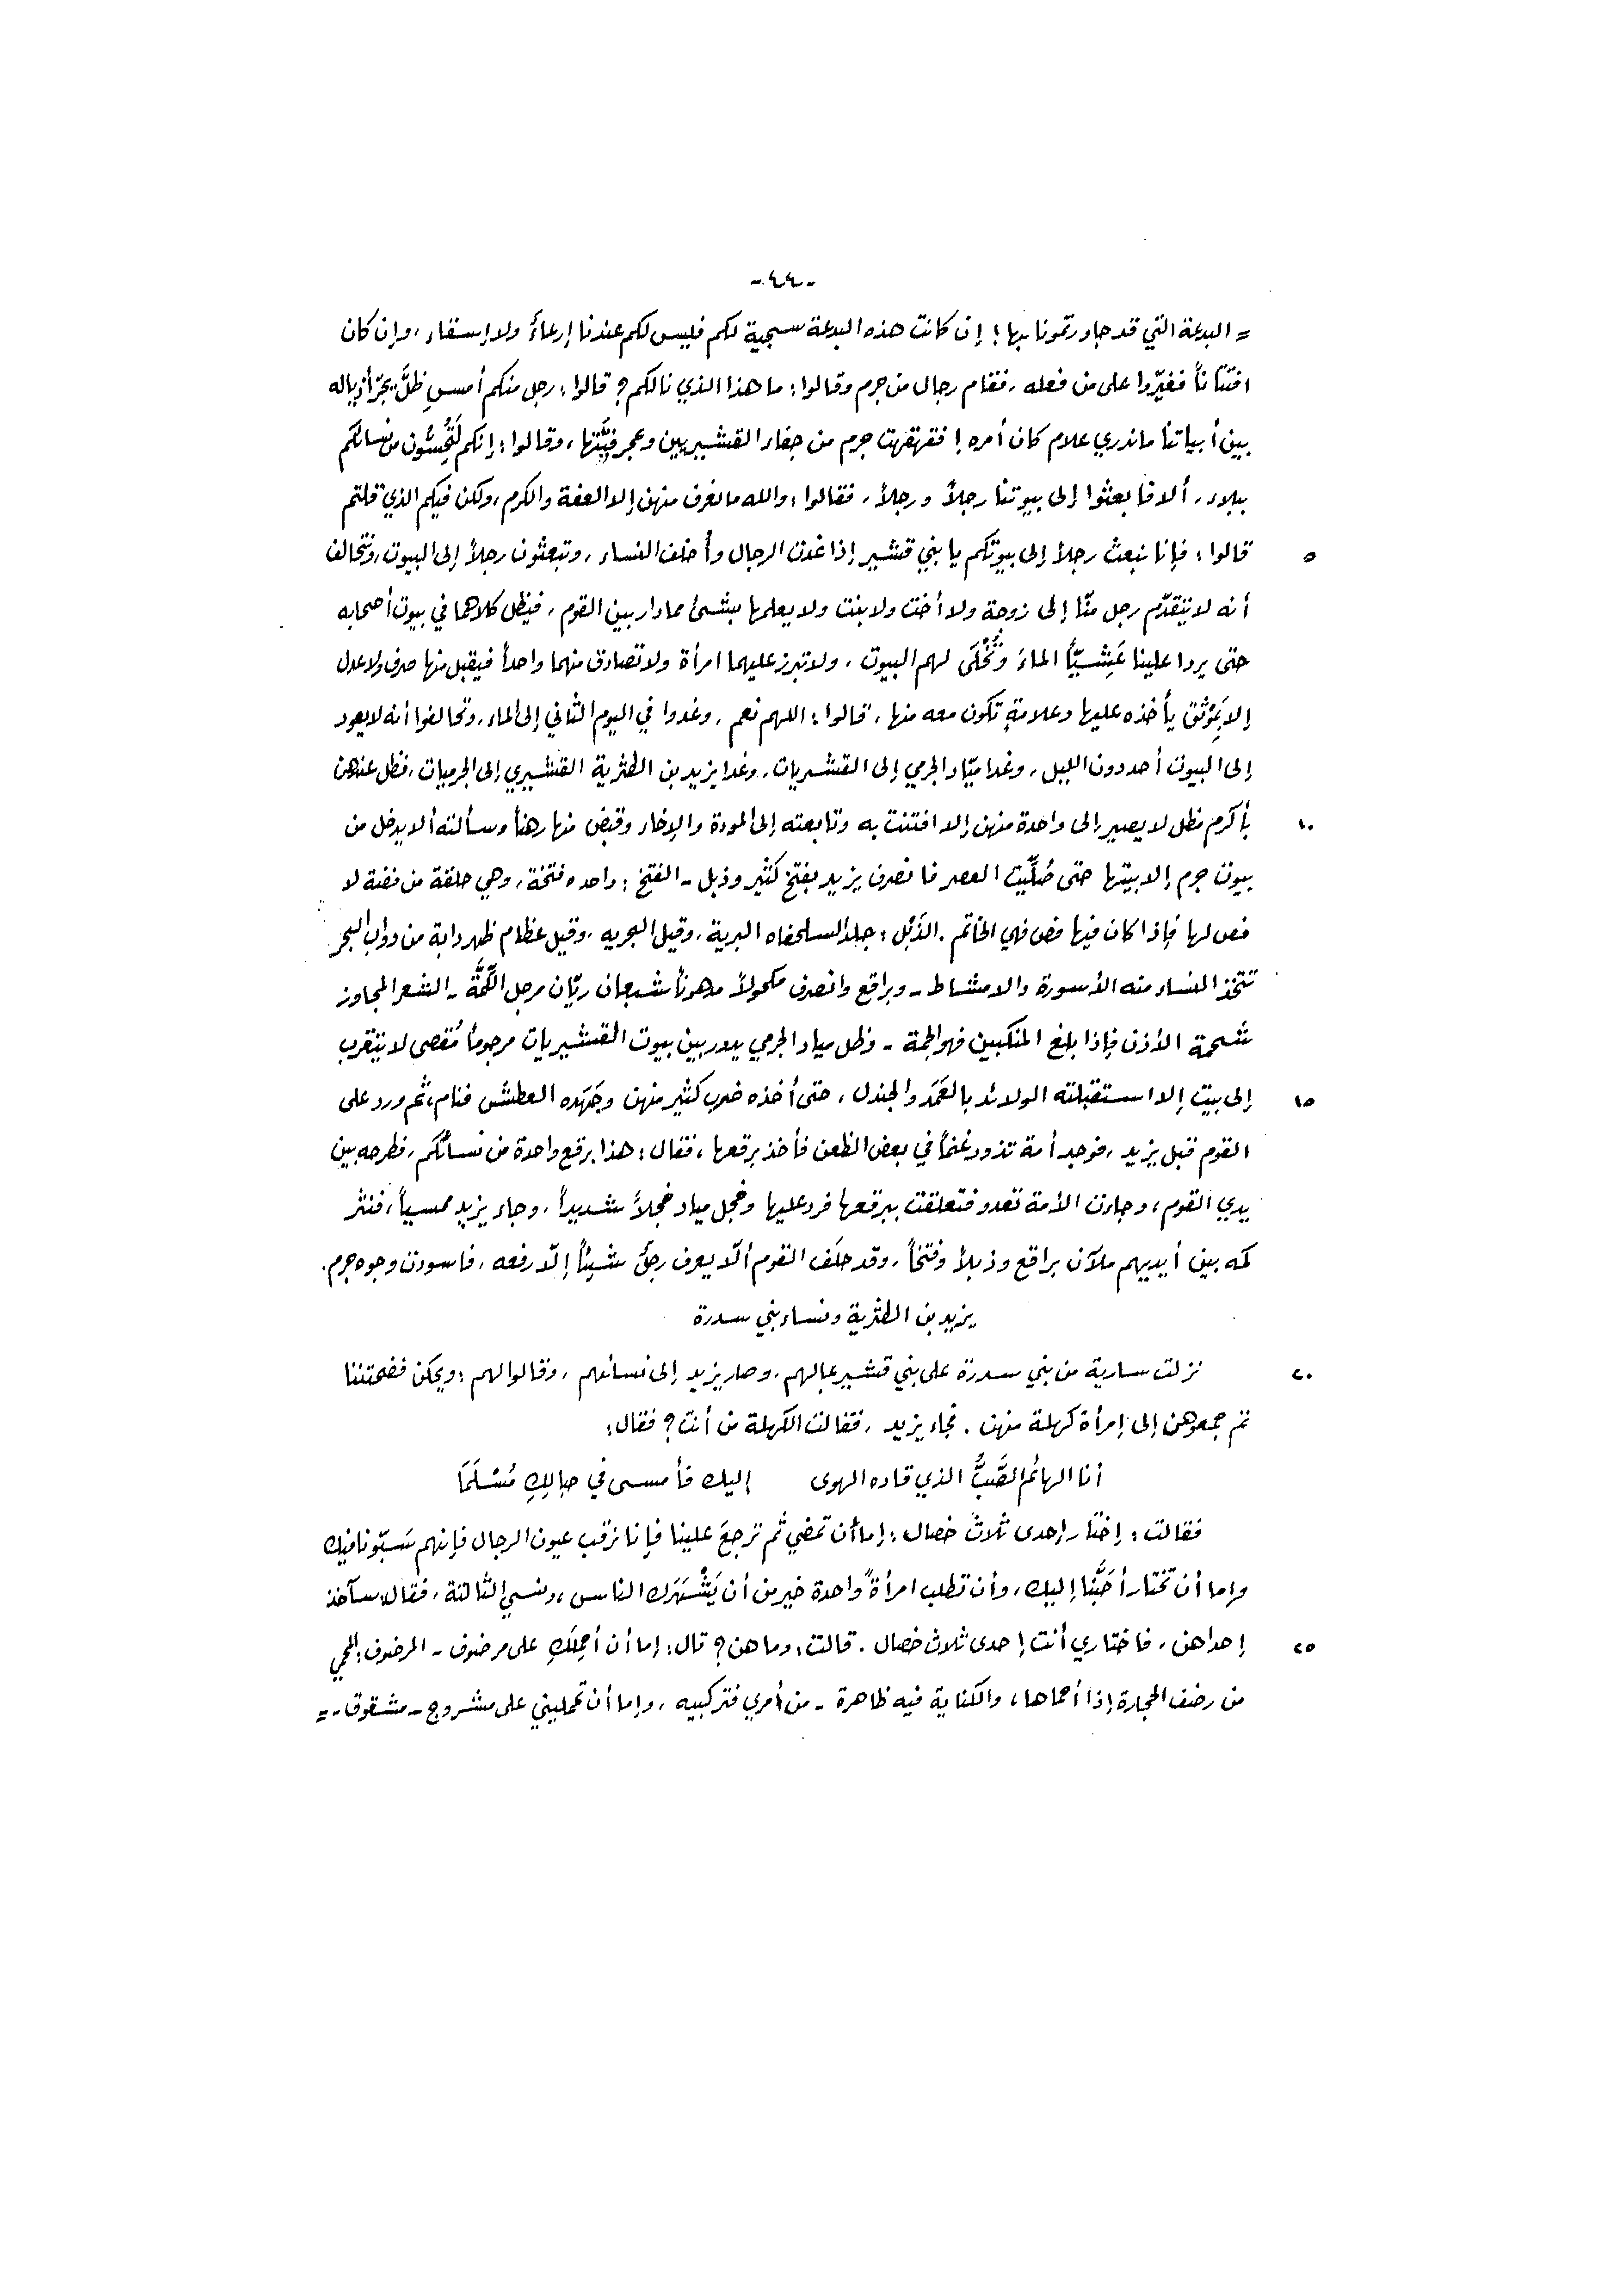 -٤٤-
= البدعة التي قد جاورتمونا بها! إن كانت هذه البدعة سجية لكم فليس لكم عندنا إرعاءً ولا إسقاء، وإن كان
افتتاناً فغيّروا على من فعله، فقام رجال من جرم وقالوا: ما هذا الذي نالكم؟ قالوا: رجل منكم أمسِ ظلَّ يجرّ أذياله
بين أبياتنا ما ندري علام كان أمره! فقهقهت جرم من جفاء القشيريين وعجرفيَّتها، وقالوا: إنكم لَتُحِسُّون من نسائكم
ببلاء، ألا فابعثوا إلى بيوتنا رجلاً ورجلاً، فقالوا: والله ما نعرف منهن إلا العفة والكرم، ولكن فيكم الذي قلتم
٥ قالوا: فإنا نبعث رجلاً إلى بيوتكم يا بني قشير إذا غدت الرجال وأُخلف النساء، وتبعثون رجلاً إلى البيوت، ونتحالف
أنه لا يتقدّم رجل منّا إلى زوجة ولا أخت ولا بنت ولا يعلمها بشيءٍ مما دار بين القوم، فيظل كلاهما في بيوت أصحابه
حتى يردا علينا عَشِيّاً الماءَ وتُخْلَى لهم البيوت، ولا تبرز عليهما امرأة ولا تصادق منهما واحداً فيقبل منها صرف ولا عدل
إلا بمَوْثق يأخذه عليها وعلامةٍ تكون معه منها، قالوا: اللهم نعم، وغدوا في اليوم الثاني إلى الماء، وتحالفوا أنه لا يعود
إلى البيوت أحد دون الليل، وغدا ميّاد الجرمي إلى القشيريات، وغدا يزيد بن الطثرية القشيري إلى الجرميات، فظل عندهن
١٠ بأكرم مظل لا يصير إلى واحدة منهن إلا افتتنت به وتابعته إلى المودة والإخاء وقبض منها رهناً وسألته ألا يدخل من
بيوت جرم إلا بيتها حتى صُلِّيت العصر فانصرف يزيد بفتخ كثير وذبل - الفتخ: واحده فتخة، وهي حلقة من فضة لا
فص لها فإذا كان فيها فص فهي الخاتم. الذَبْل: جلد السلحفاه البرية، وقيل البحريه، وقيل عظام ظهر دابة من دواب البحر
تتخذ النساء منه الأسورة والامشاط - وبراقع وانصرف مكحولاً مدهوناً شبعان ريّان مرجل اللِّمَّة - الشعر المجاوز
شحمة الأذن فإذا بلغ المنكبين فهو الجمة - وظل مياد الجرمي يدور بين بيوت القشيريات مرجوماً مُقصى لا يتقرب
١٥ إلى بيت إلا استقبلته الولائد بالعَمَد والجندل، حتى أخذه ضرب كثير منهن وجَهَده العطش فنام، ثم ورد على
القوم قبل يزيد، فوجد أمة تذود غنماً في بعض الظعن فأخذ برقعها، فقال: هذا برقع واحدة من نسائكم، فطرحه بين
يدي القوم، وجاءت الأمة تعدو فتعلقت ببرقعها فرد عليها وخجل مياد خجلاً شديداً، وجاء يزيد ممسياً، فنثر
كمه بين أيديهم ملآن براقع وذبلاً وفتخاً، وقد حلَف القوم ألّا يعرف رجلٌ شيئاً إلّا رفعه، فاسودت وجوه جرم.
يزيد بن الطثرية ونساء بني سدرة
٢٠ نزلت سارية من بني سدرة على بني قشير عيالهم، وصار يزيد إلى نسائهم، وقالوا لهم: ويحكن فضحتننا
ثم جمعوهن إلى إمرأة كهلة منهن. فجاء يزيد، فقالت الكهلة من أنت؟ فقال:
أنا الهائم الصَّبُّ الذي قاده الهوى إليك فأمسى في حبالِكِ مُسْلَمَا
فقالت: إختار إحدى ثلاث خصال: إما أن تمضي ثم ترجعَ علينا فإنا نرقب عيون الرجال فإنهم سَبّونا فيك
وإما أن تختار أحَبَّنا إليك، وأن تطلب امرأةً واحدة خير من أن يَشْهَرَك الناس، ونسي الثالثة، فقال: سآخذ
٢٥ إحداهن، فاختاري أنت إحدى ثلاث خصال. قالت: وما هن؟ قال: إما أن أحمِلَكِ على مرضوف - المرضوف: المحمي
من رضف الحجارة إذا أحماها، والكناية فيه ظاهرة - من أمري فتركبيه، وإما أن تحمليني على مشروج - مشقوق - =